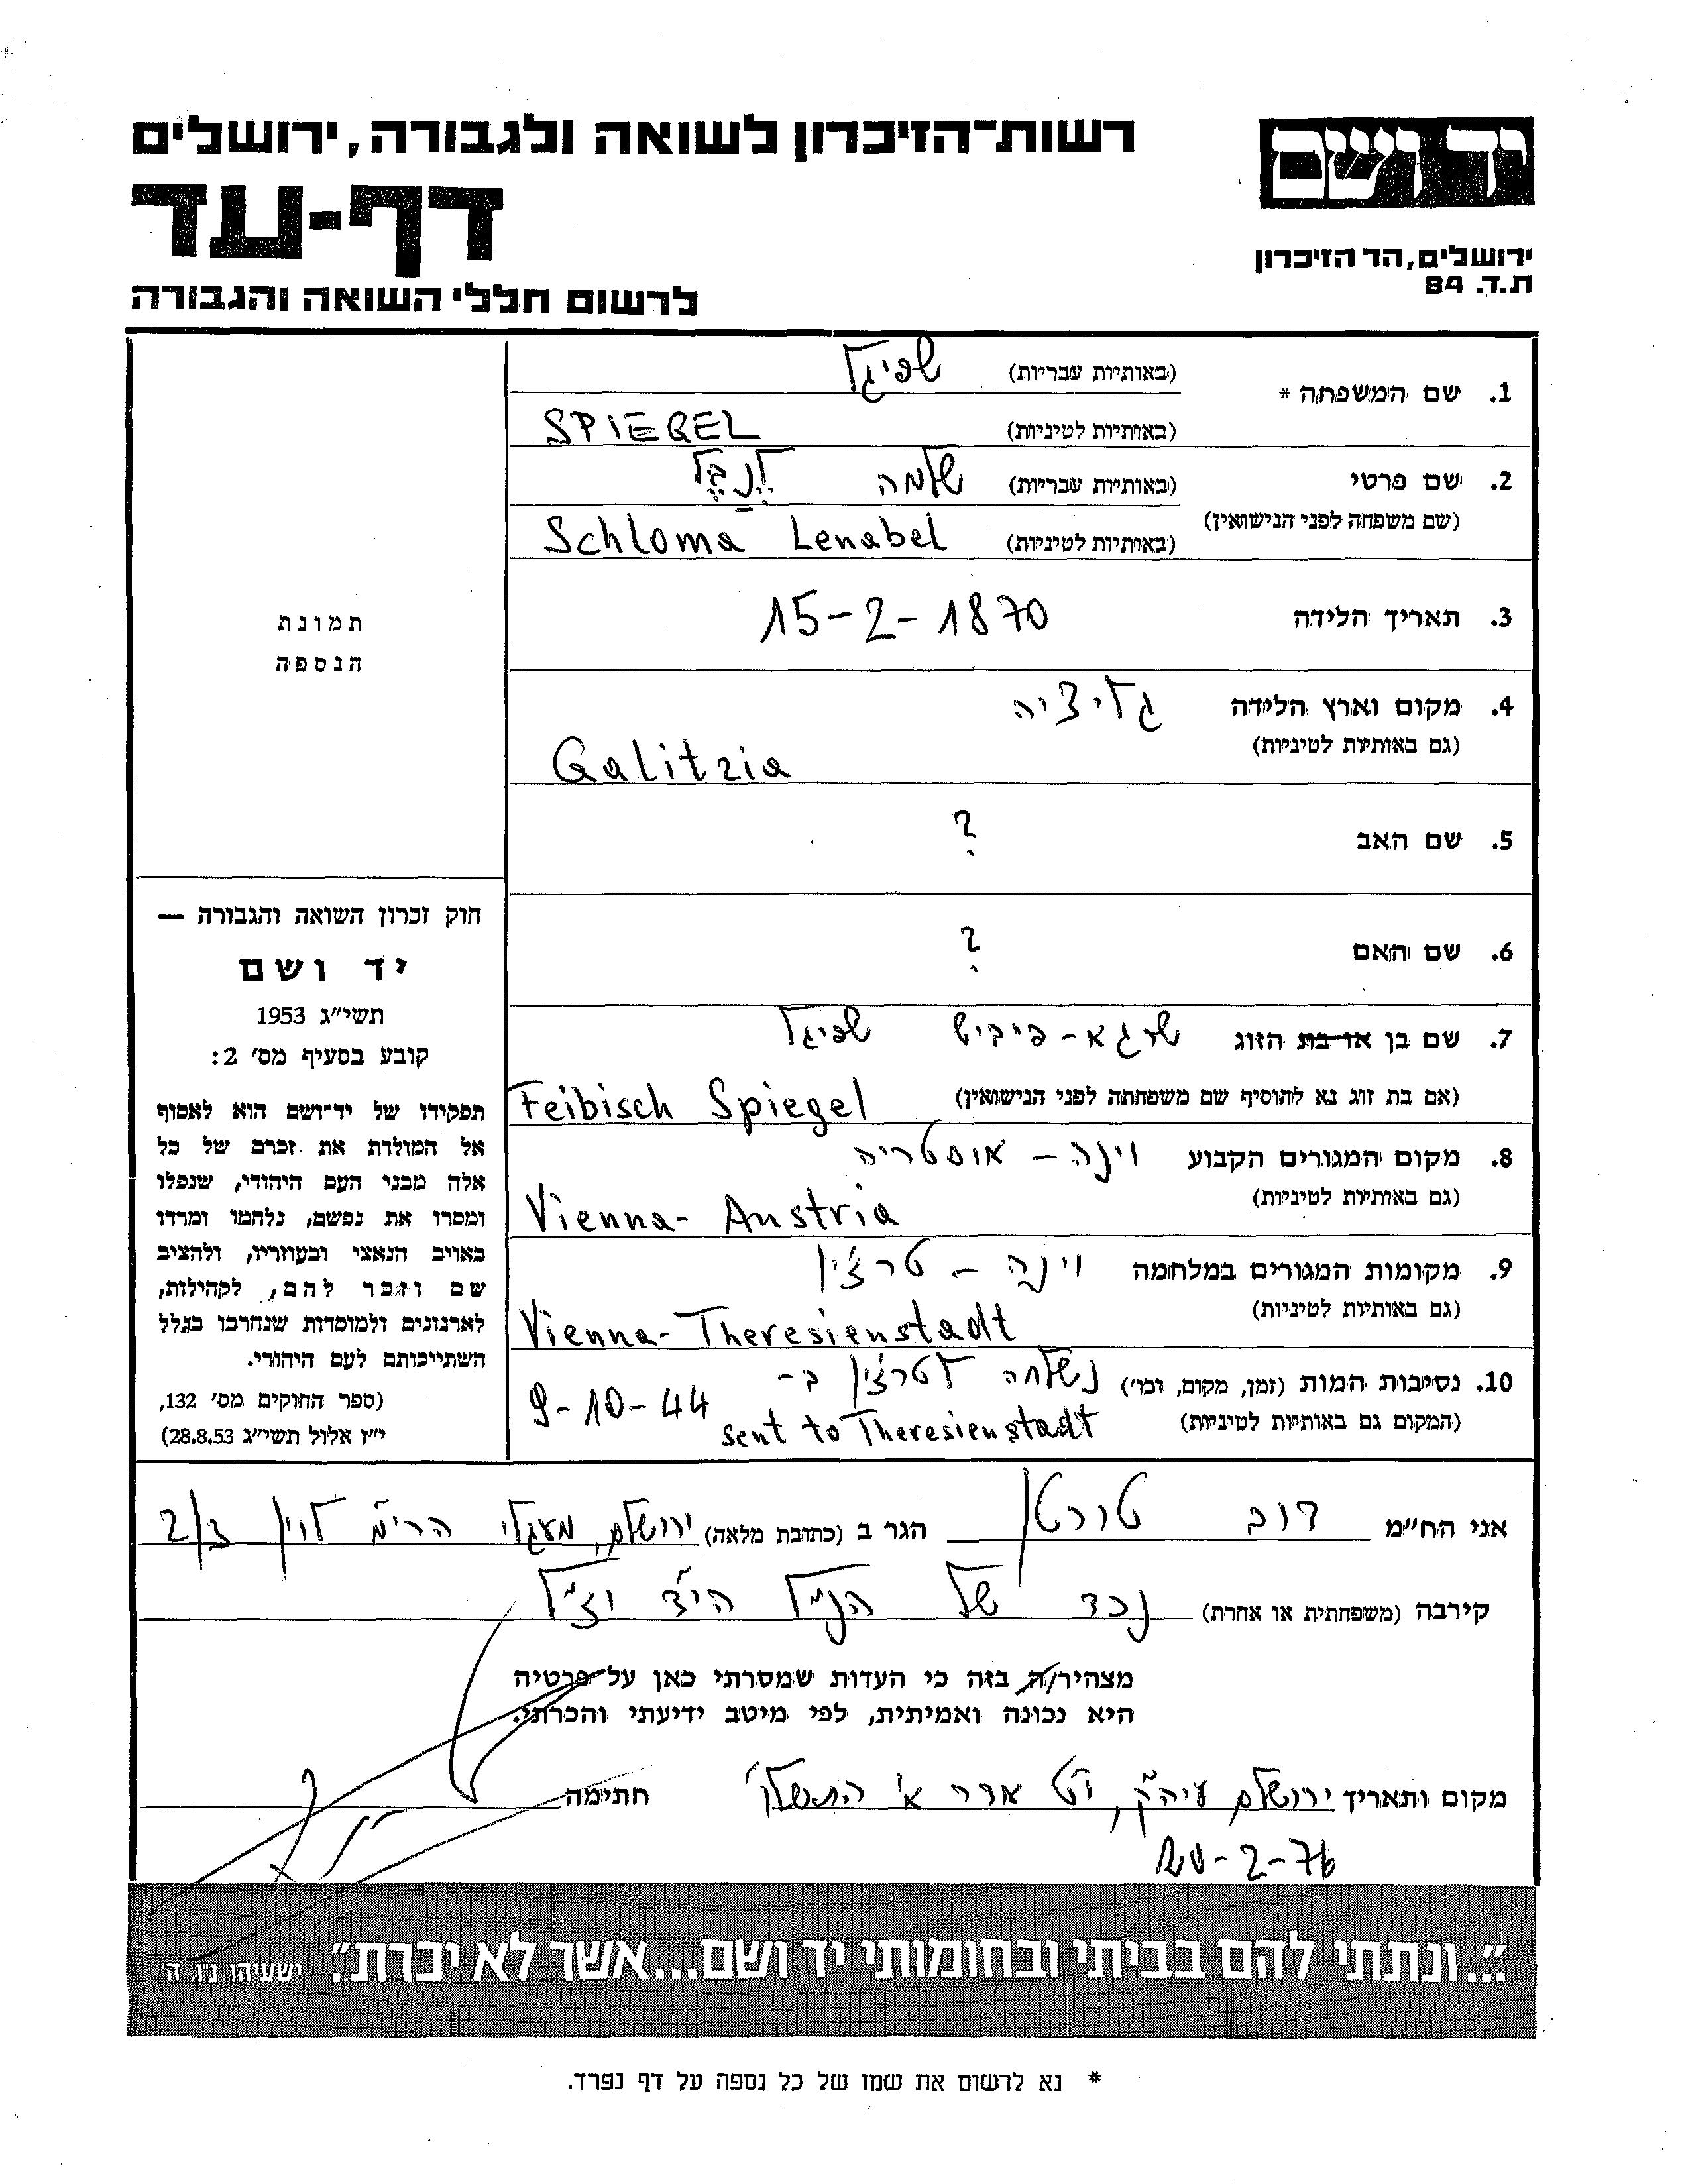 רשות־הזיכרון לשואה ולגבורה, ירושלים
דף-עד
לרשום חללי השואה והגבורה
יד ושם
ירושלים, הר הזיכרון
ת.ד. 84
1. שם המשפחה * (באותיות עבריות) שפיגל
(באותיות לטיניות) SPIEGEL
2. שם פרטי (באותיות עבריות) שלמה לֶנַבֶּל
(שם משפחה לפני הנישואין) (באותיות לטיניות) Schloma Lenabel
3. תאריך הלידה 15-2-1870
4. מקום וארץ הלידה גליציה
(גם באותיות לטיניות) Galitzia
5. שם האב ?
6. שם האם ?
7. שם בן או בת הזוג שרגא-פייביש שפיגל
(אם בת זוג נא להוסיף שם משפחתה לפני הנישואין) Feibisch Spiegel
8. מקום המגורים הקבוע וינה - אוסטריה
(גם באותיות לטיניות) Vienna- Austria
9. מקומות המגורים במלחמה וינה - טרצין
(גם באותיות לטיניות) Vienna-Theresienstadt
10. נסיבות המות (זמן, מקום, וכו') נשלחה לטרצין ב- 9-10-44
(המקום גם באותיות לטיניות) sent to Theresienstadt
תמונת
הנספה
חוק זכרון השואה והגבורה —
יד ושם
תשי״ג 1953
קובע בסעיף מס׳ 2:
תפקידו של יד־ושם הוא לאסוף
אל המולדת את זכרם של כל
אלה מבני העם היהודי, שנפלו
ומסרו את נפשם, נלחמו ומרדו
באויב הנאצי ובעוזריו, ולהציב
שם וזכר להם, לקהילות,
לארגונים ולמוסדות שנחרבו בגלל
השתייכותם לעם היהודי.
(ספר החוקים מס׳ 132,
י״ז אלול תשי״ג 28.8.53)
אני הח״מ דוב טורטן הגר ב (כתובת מלאה) ירושלם, מעגלי הרי״מ לוין 2/3
קירבה (משפחתית או אחרת) נכד של הנ״ל הי״ד וז״ל
מצהיר/ה בזה כי העדות שמסרתי כאן על פרטיה
היא נכונה ואמיתית, לפי מיטב ידיעתי והכרתי.
מקום ותאריך ירושלם עיה״ק, י״ט אדר א' התשל״ו חתימה
20-2-76
"...ונתתי להם בביתי ובחומותי יד ושם...אשר לא יכרת." ישעיהו נ״ו, ה׳
* נא לרשום את שמו של כל נספה על דף נפרד.